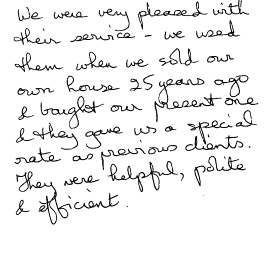 We were very pleased with
their service - we used
them when we sold our
own house 25 years ago
& bought our present one
& they gave us a special
rate as previous clients.
They were helpful, polite
& efficient.